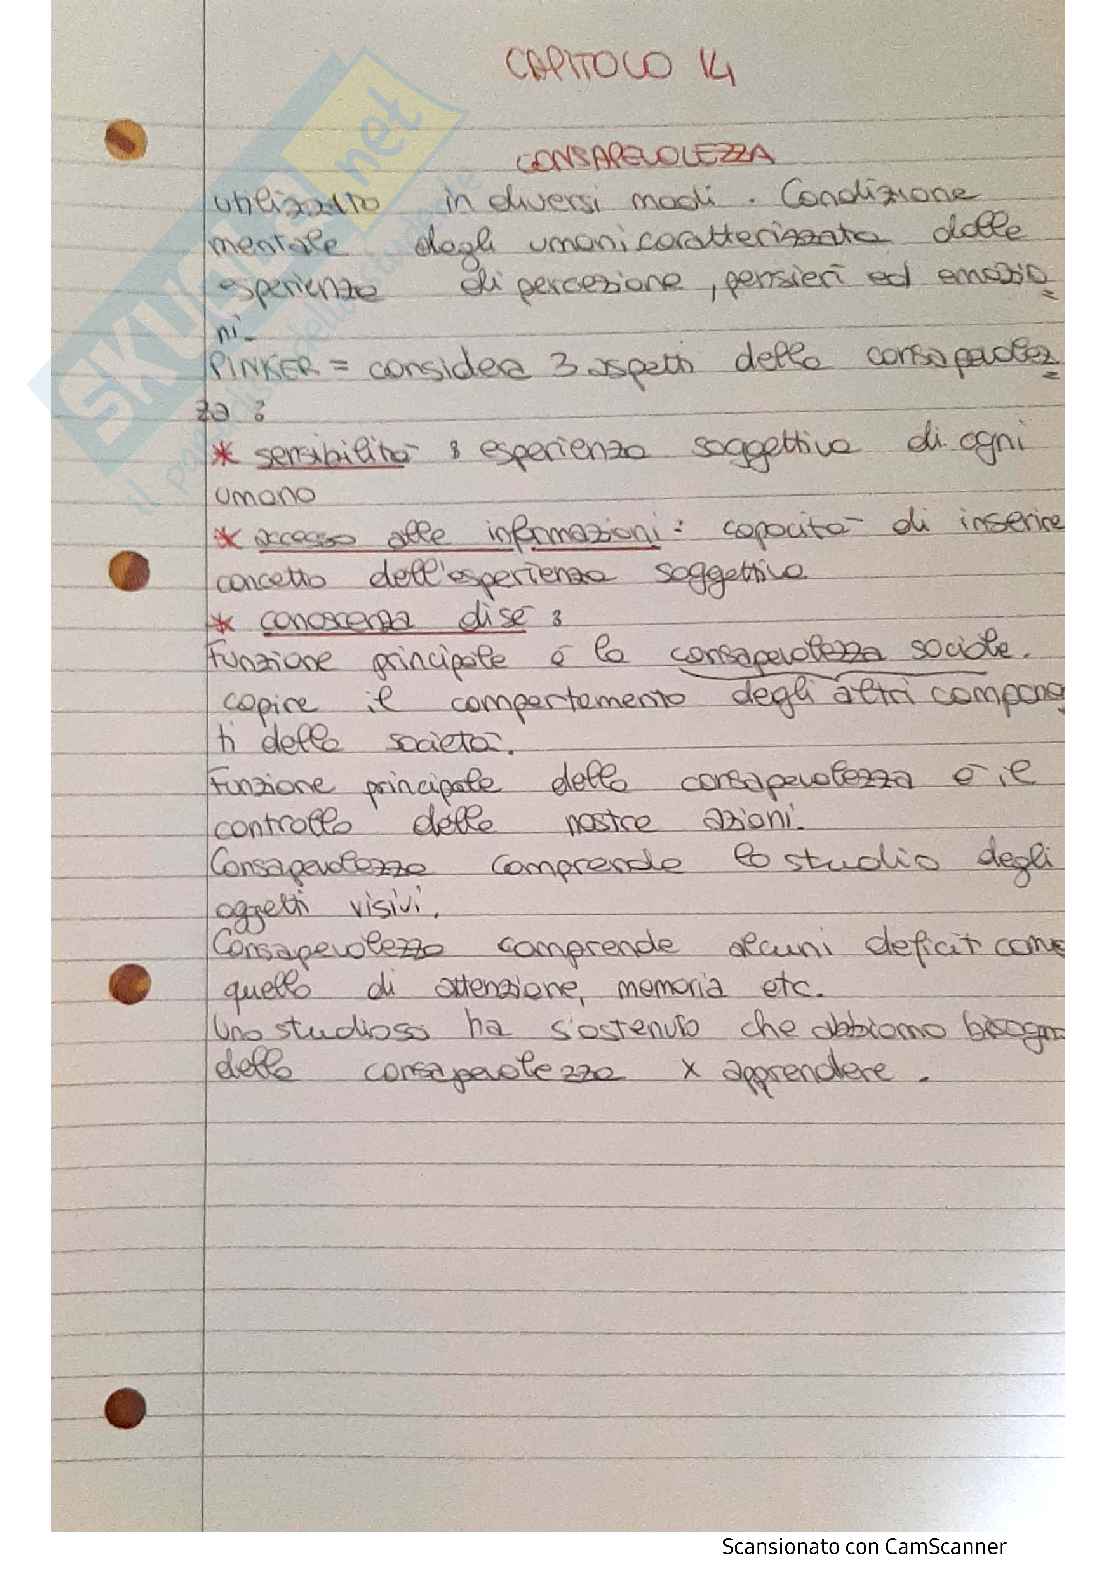 CAPITOLO 14
CONSAPEVOLEZZA
utilizzato in diversi modi. Condizione
mentale degli umani caratterizzata dalle
esperienze di percezione, pensieri ed emozio=
ni.
PINKER = considera 3 aspetti della consapevolez=
za :
* sensibilità : esperienza soggettiva di ogni
umano
* accesso alle informazioni : capacità di inserire
concetto dell'esperienza soggettiva
* conoscenza di sé :
Funzione principale è la consapevolezza sociale.
capire il comportamento degli altri componen
ti della società.
Funzione principale della consapevolezza è il
controllo delle nostre azioni.
Consapevolezza comprende lo studio degli
oggetti visivi.
Consapevolezza comprende alcuni deficit come
quello di attenzione, memoria etc.
Uno studioso ha sostenuto che abbiamo bisogno
della consapevolezza x apprendere.
SKUOLA.net
Scansionato con CamScanner